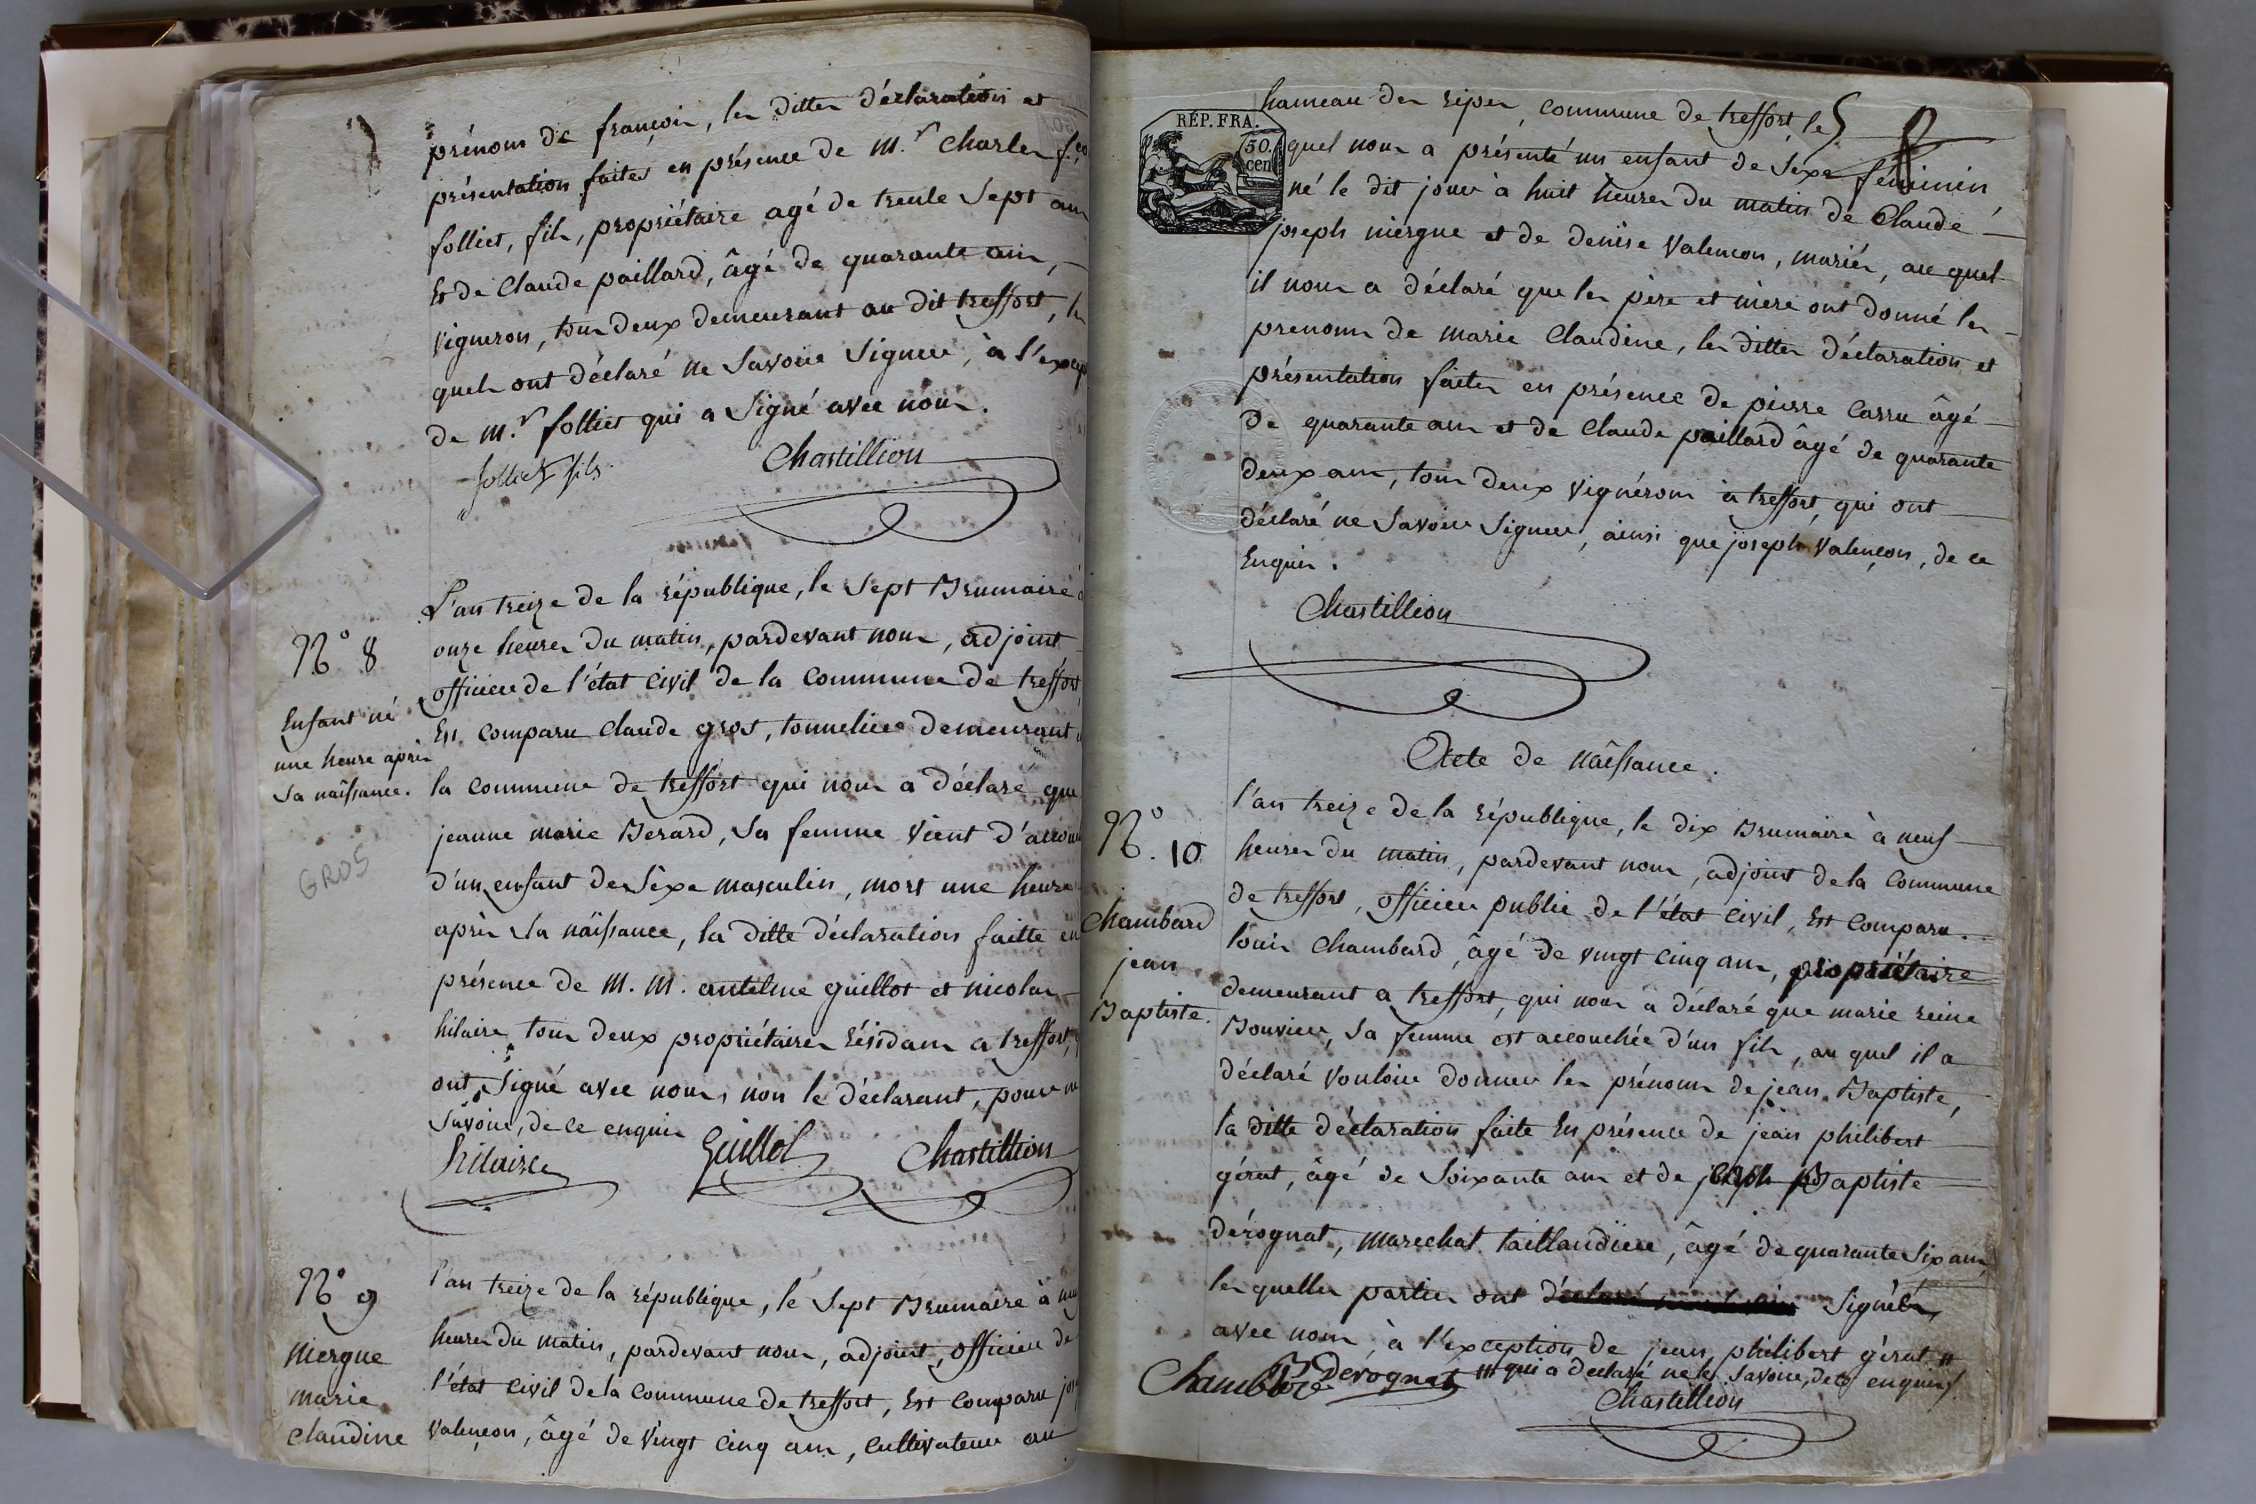 prénom de françois, les dittes déclaration et
présentation faites en présence de M.r Charles
folliet, fils, propriétaire agé de trente Sept ans
Et de Claude paillard, âgé de quarante ans,
vigneron, tous deux demeurant au dit treffort, les
quels ont déclaré ne Savoir Signer, à l'excep
de M.r folliet qui a Signé avec nous.
folliet fils
Chastillion
N.o 8
Enfant né
une heure après
sa naissance.
GROS
L'an treize de la république, le Sept Brumaire à
onze heures du matin, pardevant nous, adjoint
officier de l'état civil de la Commune de treffort
Est comparu Claude gros, tonnelier demeurant
la commune de treffort qui nous a déclaré que
jeanne marie Berard, Sa femme vient d'accou
d'un enfant de Sèxe masculin, mort une heure
après sa naissance, la ditte déclaration faitte en
présence de M. M. antelme guillot et nicolas
hilaire tous deux propriétaires résidans a treffort,
ont Signé avec nous, non le déclarant, pour ne
Savoir, de ce enquis
hilaire
Guillot
Chastillion
N.o 9
Mergue
marie
claudine
l'an treize de la république, le Sept Brumaire à
heures du matin, pardevant nous, adjoint, officier de
l'état civil de la commune de treffort, Est comparu
Valençon, âgé de vingt cinq ans, cultivateur au
RÉP. FRA.
50.
cent
hameau des ripes, commune de treffort le
quel nous a présenté un enfant de Sexe féminin
né le dit jour à huit heures du matin de Claude
joseph mergue et de denise Valencon, mariés, au quel
il nous a déclaré que les père et mère ont donné les
prenoms de marie Claudine, les dittes déclaration et
présentation faites en présence de pierre Carru âgé
de quarante ans et de Claude paillard âgé de quarante
deux ans, tous deux vignérons à treffort, qui ont
déclaré ne Savoir Signer, ainsi que joseph Valençon, de ce
Enquis.
Chastillion
Acte de naissance.
N.o 10
Chambard
jean
Baptiste.
l'an treize de la république, le dix Brumaire à neuf
heures du matin, pardevant nous, adjoint de la Commune
de treffort, officier public de l'état civil, Est comparu
louis Chambard, âgé de vingt cinq ans, propriétaire
demeurant a treffort, qui nous a déclaré que marie reine
Bouvier, Sa femme est accouchée d'un fils, au quel il a
déclaré vouloir donner les prénoms de jean Baptiste,
la ditte déclaration faite En présence de jean philibert
gérut, âgé de Soixante ans et de joseph Baptiste
dérognat, marechal taillandier, âgé de quarante Six ans,
les quelles parties ont déclaré Signées
avec nous, à l'exception de jean philibert gérut
qui a declaré ne le Savoir, de ce enquis
Derognat
Chastillion